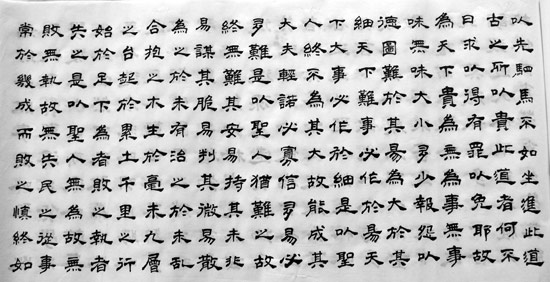 以先駟馬不如坐進此道
古之所以貴此道者何不
日求以得有罪以免耶故
為天下貴為無為事無事
味無味大小多少報怨以
德圖難於其易為大於其
細天下難事必作於易天
下大事必作於細是以聖
人終不為其大故能成其
大夫輕諾必寡信多易必
多難是以聖人猶難之故
終無難其安易持其未兆
易謀其脆易判其微易散
為之於未有治之於未亂
合抱之木生於毫末九層
之台起於累土千里之行
始於足下為者敗之執者
失之是以聖人無為故無
敗無執故無失民之從事
常於幾成而敗之慎終如